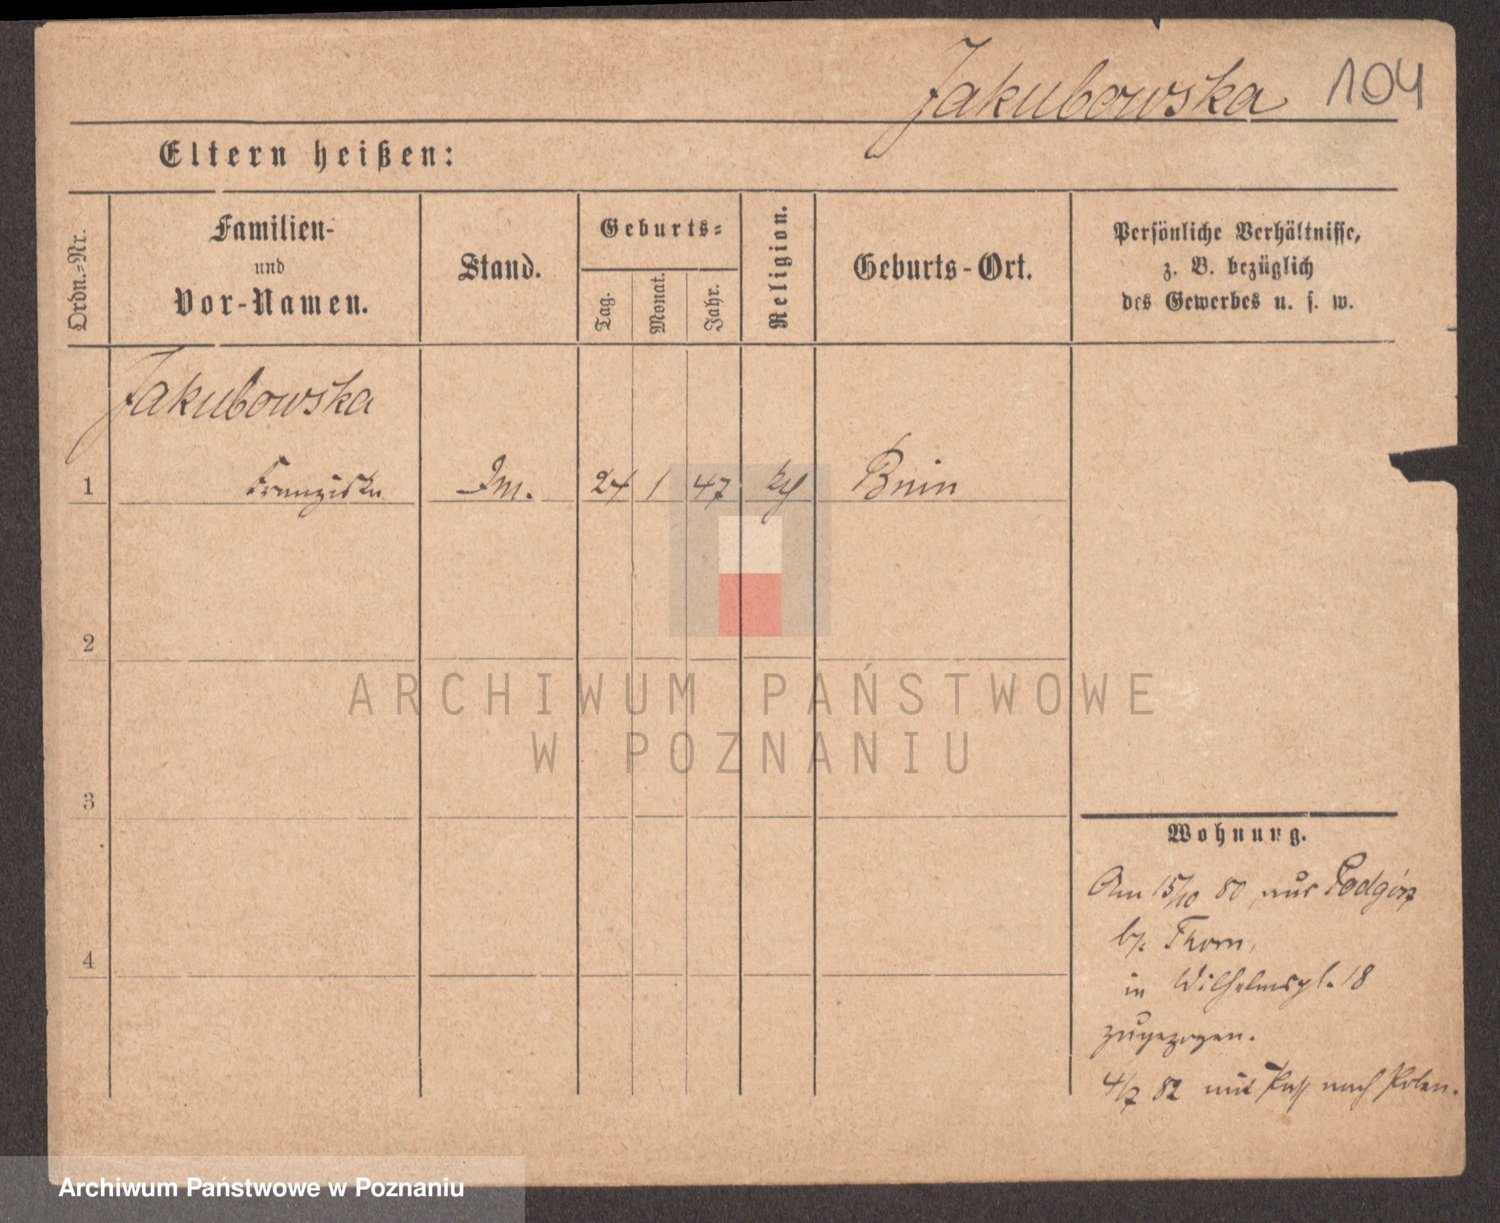 Jakubowska 104
Eltern heißen:
Ordn.-Nr.
Familien-
und
Vor-Namen.
Stand.
Geburts-
Tag.
Monat.
Jahr.
Religion.
Geburts-Ort.
Persönliche Verhältnisse,
z. B. bezüglich
des Gewerbes u. s. w.
Jakubowska
1 Franziska 24 1 47 Bnin
2
3
4
Wohnung.
Am 15/10 80 aus Podgórz
b/. Thorn,
in Wilhelmspl. 18
zugezogen.
4/7 82 mit Paß nach Polen.
ARCHIWUM PAŃSTWOWE
W POZNANIU
Archiwum Państwowe w Poznaniu